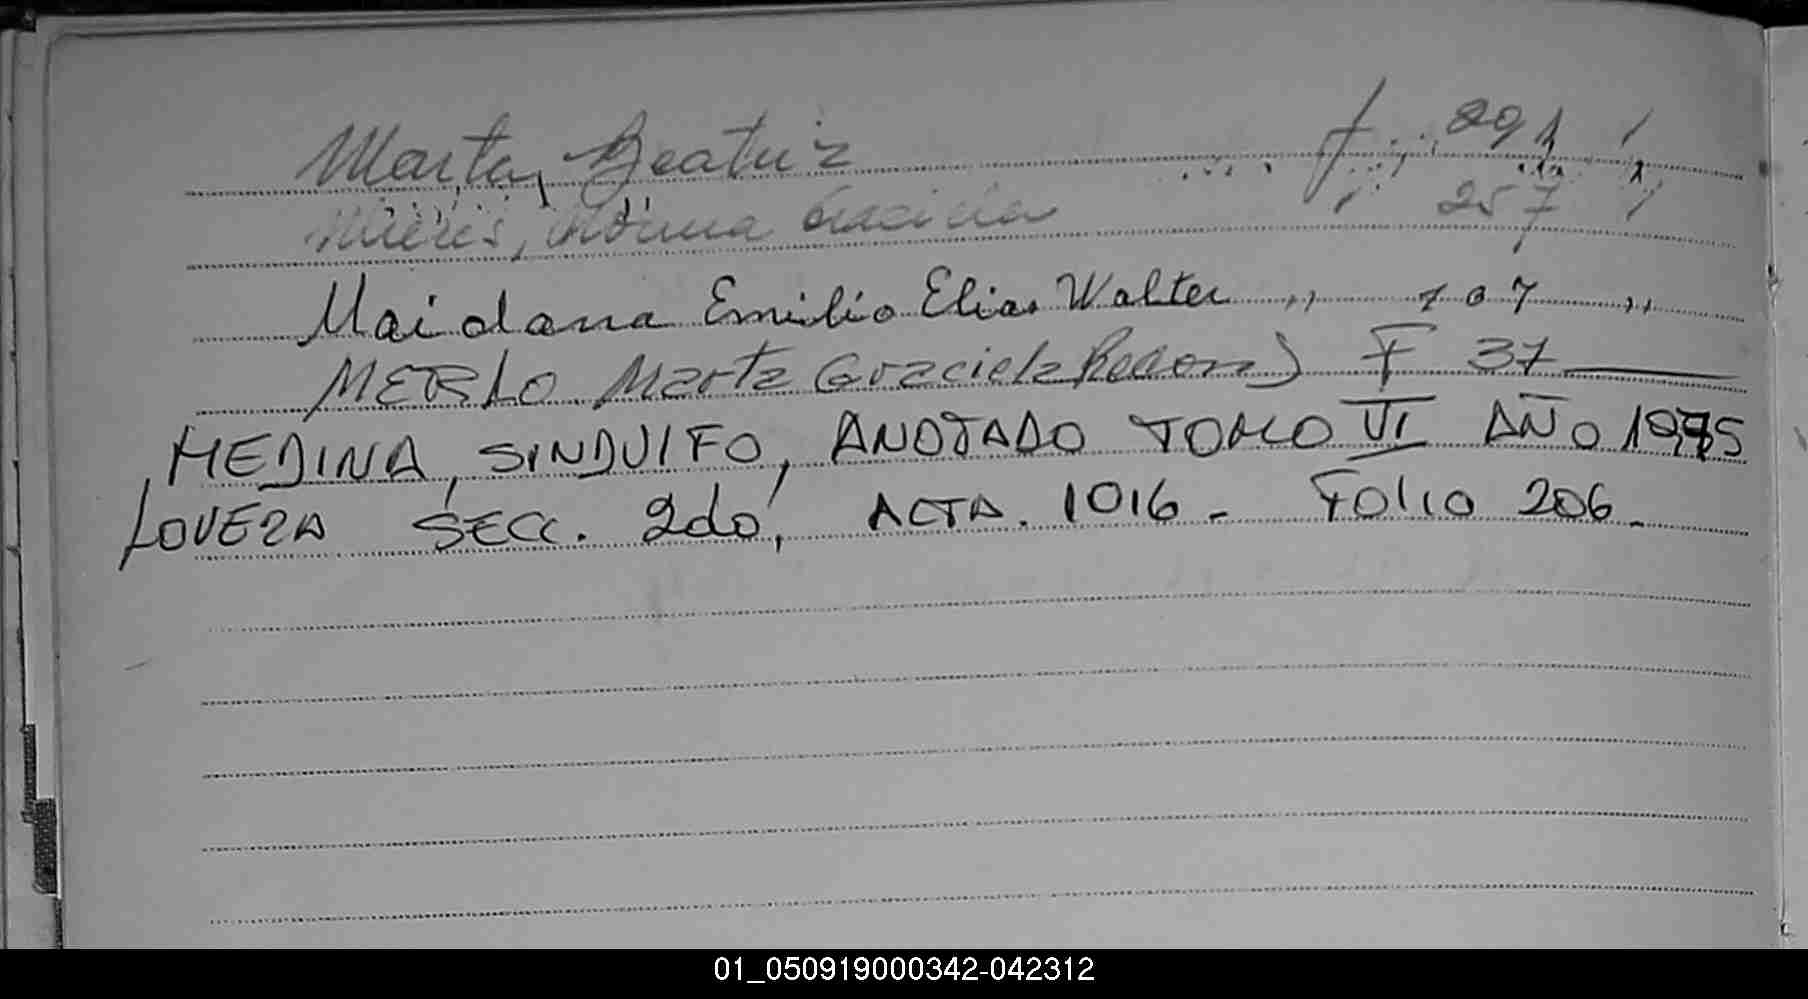 Marta, Beatriz .... f. 291 "
Mieres, Norma Graciela " 257 "
Maidana Emilio Elias Walter " 107 "
MERLO Marta Graciela F 37
MEDINA, SINDULFO, ANOTADO TOMO VI AÑO 1975
LOVERA SECC. 2do, ACTA. 1016 - Folio 206.
01_050919000342-042312